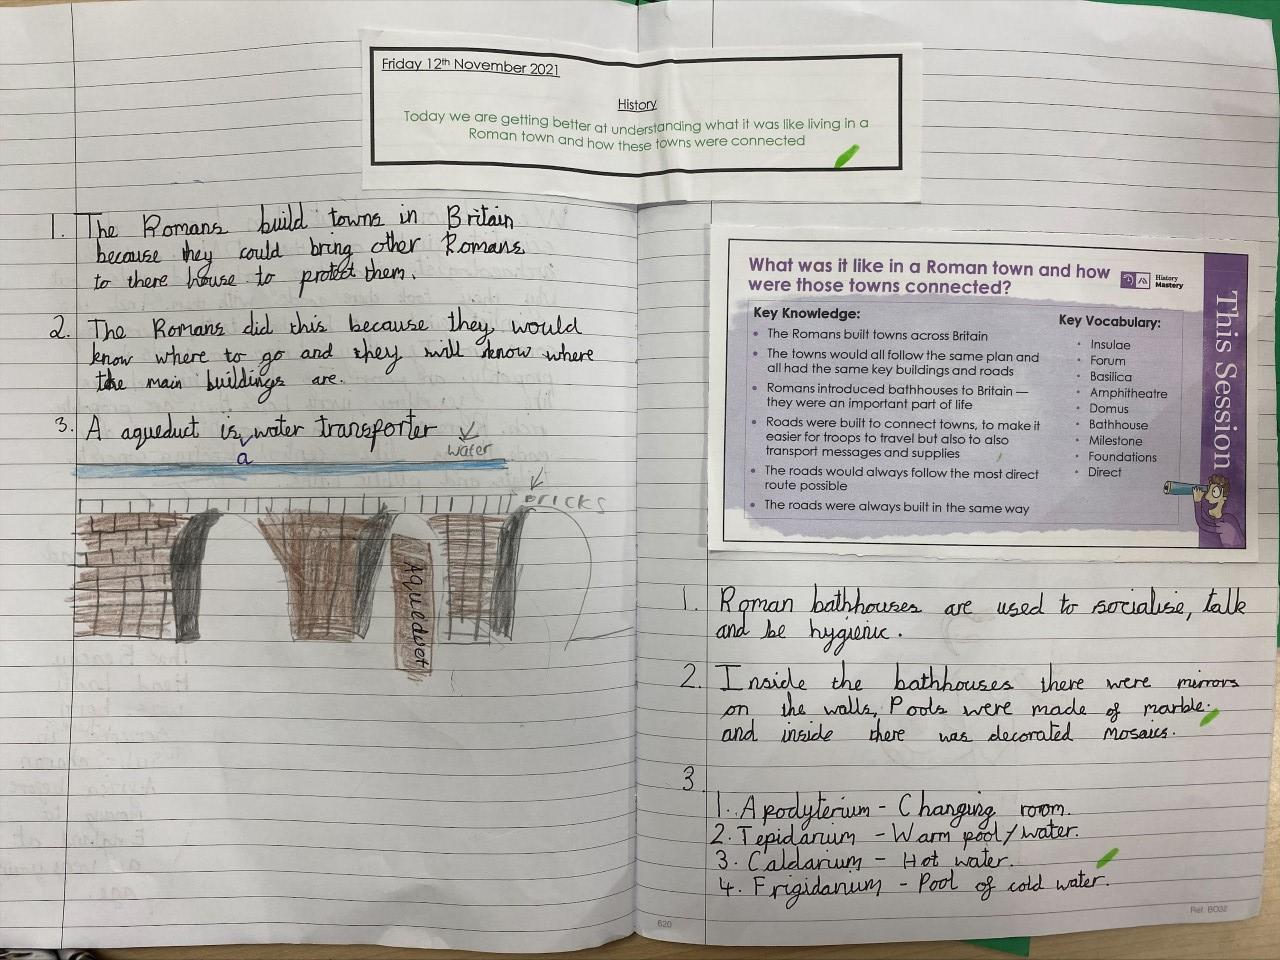 Friday 12th November 2021
History
Today we are getting better at understanding what it was like living in a
Roman town and how these towns were connected
1. The Romans build towns in Britain
because they could bring other Romans
to there house to protect them.
2. The Romans did this because they would
know where to go and they will know where
the main buildings are.
3. A aqueduct is water transporter
a
water
bricks
Aqueduet
What was it like in a Roman town and how
were those towns connected?
History
Mastery
This Session
Key Knowledge:
• The Romans built towns across Britain
• The towns would all follow the same plan and
all had the same key buildings and roads
• Romans introduced bathhouses to Britain —
they were an important part of life
• Roads were built to connect towns, to make it
easier for troops to travel but also to also
transport messages and supplies
• The roads would always follow the most direct
route possible
• The roads were always built in the same way
Key Vocabulary:
• Insulae
• Forum
• Basilica
• Amphitheatre
• Domus
• Bathhouse
• Milestone
• Foundations
• Direct
1. Roman bathhouses are used to socialise, talk
and be hygienic.
2. Inside the bathhouses there were mirrors
on the walls, Pools were made of marble.
and inside there was decorated mosaics.
3.
1. Apodyterium - Changing room.
2. Tepidarium - Warm pool/water.
3. Caldarium - Hot water.
4. Frigidanium - Pool of cold water.
620
Ref: BO32